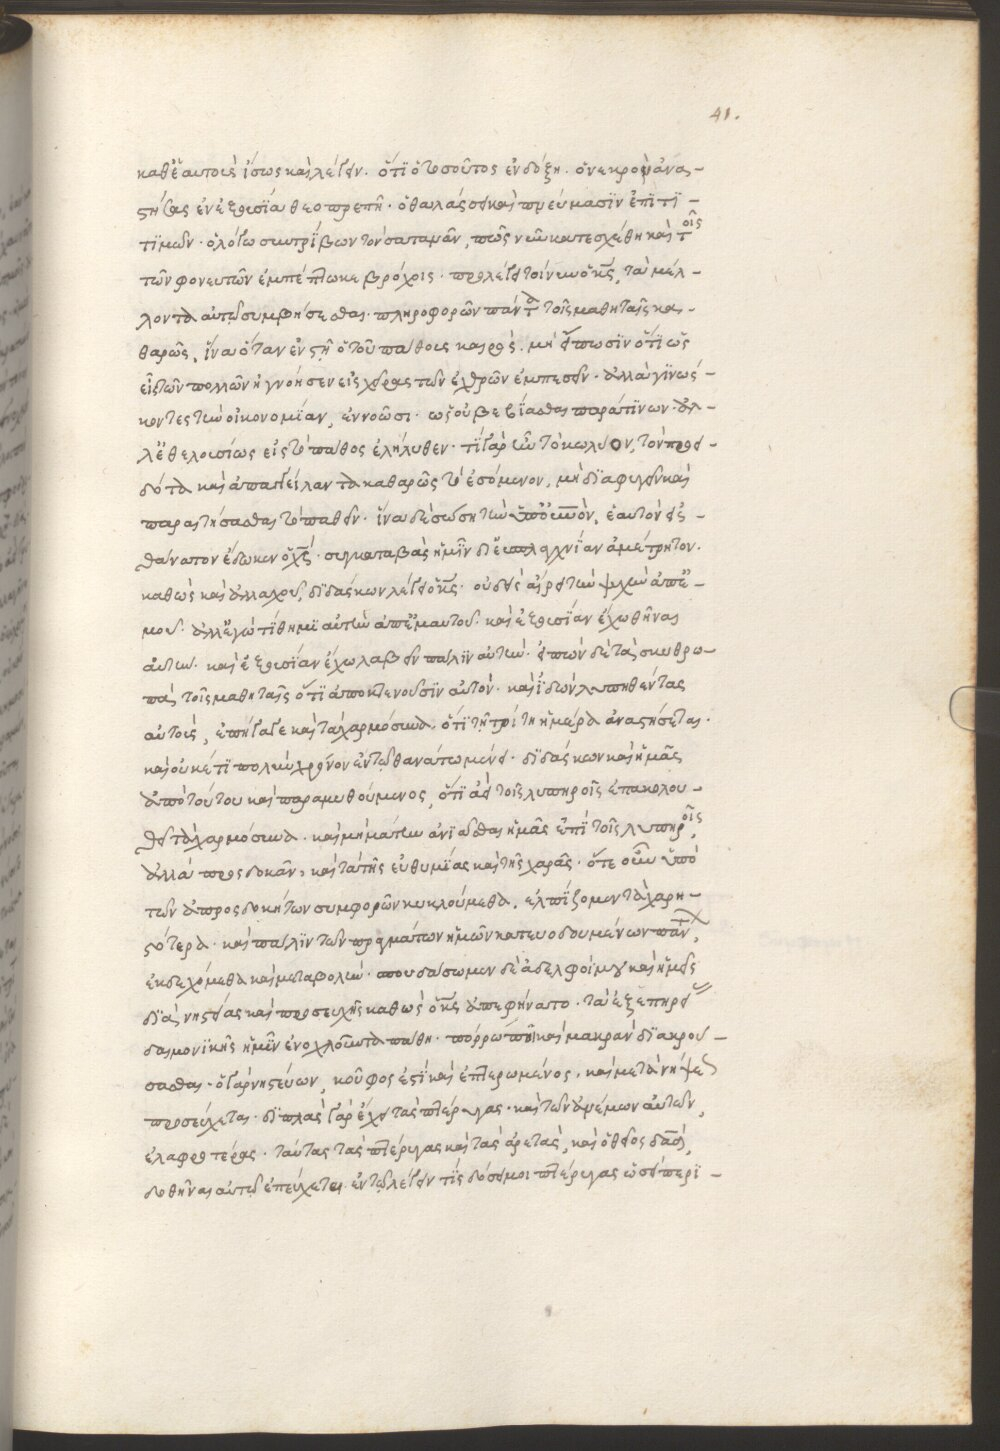 41.
καθ' ἑαυτοὺς ἴσως καὶ λέγειν. ὅτι ὁ τοσοῦτος ἐν δόξῃ. ὁ νεκροὺς ἀνα-
στήσας ἐν ἐξουσία θεοπρεπῆ. ὁ θαλάσσει καὶ πνεύμασιν ἐπιτι-
τιμῶν. ὁ λόγω συντρίβων τὸν σαταμᾶν, πῶς νῦν κατεσχέθη καὶ τοῖς
τῶν φονευτῶν ἐμπέπτωκε βρόχοις. προλέγει τοίνυν ὁ κς, τὰ μέλ-
λοντα αὐτῷ συμβήσεσθαι. πληροφορῶν πάντα τοῖς μαθηταῖς κα-
θαρῶς, ἵνα ὅταν ἐνστῆ ὁ τοῦ πάθους καιρὸς. μὴ εἴπωσιν ὅτι ὡς
εἷς τῶν πολλῶν ἠγνόησεν εἰς χεῖρας τῶν ἐχθρῶν ἐμπεσεῖν. ἀλλὰ γινώσ-
κοντες τὴν οἰκονομίαν, ἐννοῶσι. ὡς οὐ βεβίασθαι παρά τινων. ἀλ-
λ' ἐθελουσίως εἰς τὸ πάθος ἐλήλυθεν. τί γὰρ ἦν τὸ κωλύον, τὸν προει-
δότα καὶ ἀπαγγείλαντα καθαρῶς τὸ ἐσόμενον, μὴ διαφυγεῖν καὶ
παραιτήσασθαι τὸ παθεῖν. ἵνα δὲ σώσῃ τὴν ὑπ' οὐρανὸν, ἑαυτὸν εἰς
θάνατον ἔδωκεν ὁ χς. συγκαταβὰς ἡμῖν δι' εὐσπλαγχνίαν ἀμέτρητον.
καθὼς καὶ ἀλλαχοῦ, διδάσκων λέγει ὁ κς. οὐδεὶς αἴρει τὴν ψυχὴν ἀπ' ἐ-
μοῦ. ἀλλ' ἐγὼ τίθημι αὐτὴν ἀπ' ἐμαυτοῦ. καὶ ἐξουσίαν ἔχω θῆναι
αὐτὴν. καὶ ἐξουσίαν ἔχω λαβεῖν πάλιν αὐτὴν. εἰπὼν δὲ τὰ σκυθρω-
πὰ τοῖς μαθηταῖς ὅτι ἀποκτενοῦσιν αὐτὸν. καὶ ἰδὼν λυπηθέντας
αὐτοὺς, ἐπήγαγε καὶ τὰ χαρμόσυνα. ὅτι τῇ τρίτῃ ἡμέρα ἀναστήσεται.
καὶ οὐκέτι πολὺν χρόνον ἐν τῷ θανάτω μένει. διδάσκων καὶ ἡμᾶς
ἀπὸ τούτου καὶ παραμυθούμενος, ὅτι ἀεὶ τοῖς λυπηροῖς ἐπακολου-
θεῖ τὰ χαρμόσυνα. καὶ μὴ μάτην ἀνιᾶσθαι ἡμᾶς ἐπὶ τοῖς λυπηροῖς,
ἀλλὰ προσδοκᾶν, καὶ τὰ τῆς εὐθυμίας καὶ τῆς χαρᾶς. ὅτε οὖν ὑπὸ
τῶν ἀπροσδοκήτων συμφορῶν κυκλούμεθα, ἐλπίζομεν τὰ χαρη-
στότερα. καὶ πάλιν τῶν πραγμάτων ἡμῶν κατευοδουμένων πάντα,
ἐκδεχόμεθα καὶ μεταβολὴν. σπουδάσωμεν δὲ ἀδελφοί μου καὶ ἡμεῖς
διὰ νηστείας καὶ προσευχῆς καθὼς ὁ κς ἀπεφήνατο. τὰ ἐξ ἐπηρεί
δαιμονικῆς ἡμῖν ἐνοχλοῦντα πάθη. πόρρω που καὶ μακρὰν διακρού-
σασθαι. ὁ γὰρ νηστεύων, κοῦφος ἐστὶ καὶ ἐπτερωμένος, καὶ μετὰ νήψεως
προσεύχεται. διπλὰς γὰρ ἔχει τὰς πτέρυγας. καὶ τῶν ἀνέμων αὐτῶν,
ἐλαφροτέρας. ταύτας τὰς πτέρυγας καὶ τὰς ἀρετὰς, καὶ ὁ θεῖος δαδ,
δοθῆναι αὐτῷ ἐπεύχεται ἐν τῷ λέγειν τίς δώσει μοι πτέρυγας ὡσεὶ περι-